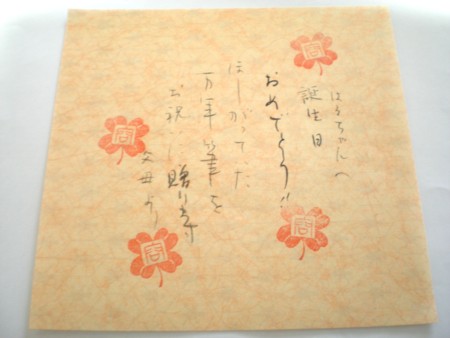 はるちゃんへ
誕生日
おめでとう!!
ほしがっていた
万年筆を
お祝いに贈ります
父母より